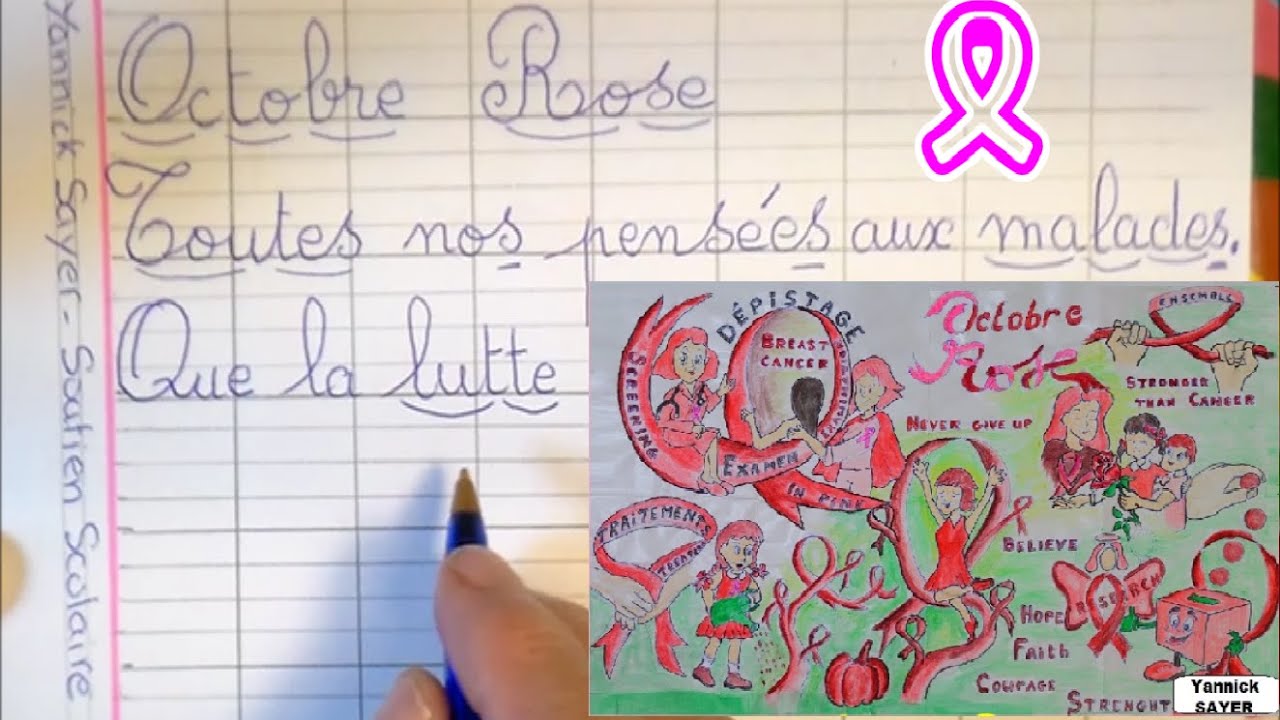 Octobre Rose
Toutes nos pensées aux malades.
Que la lutte
Yannick Sayer - Soutien Scolaire
DÉPISTAGE
BREAST
CANCER
SCREENING
EXAMEN
IN PINK
Octobre
Rose
ENSEMBLE
STRONGER
THAN CANCER
NEVER GIVE UP
TRAITEMENTS
BELIEVE
RESEARCH
HOPE
FAITH
COURAGE
STRENGHT
Yannick
SAYER